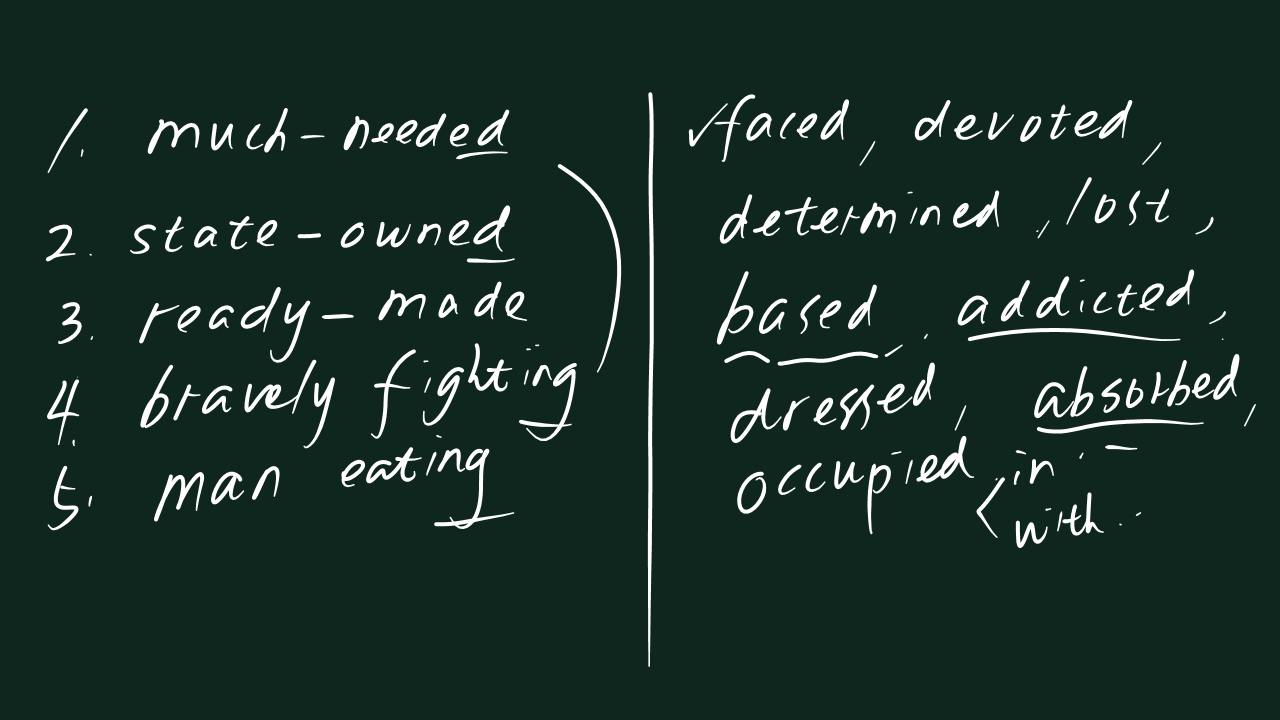 1. much-needed
2. state-owned
3. ready-made
4. bravely fighting
5. man eating
✓faced, devoted,
determined, lost,
based, addicted,
dressed, absorbed,
occupied in
with